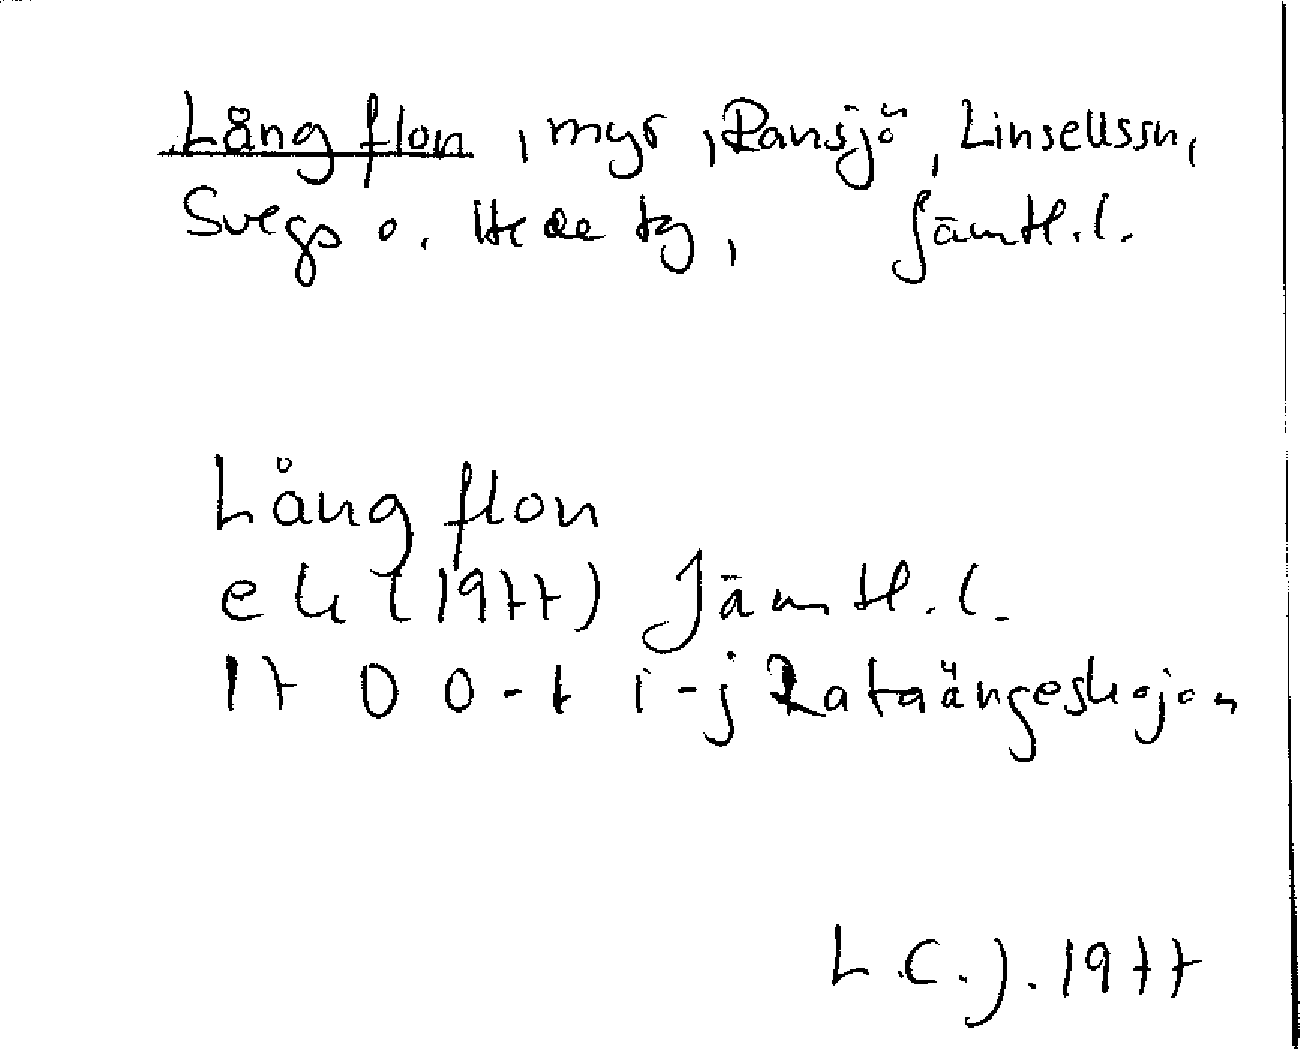 Långflon, myr, Ransjö, Linsellssn,
Svegs o. Hede tg, Jämtl.l.
Långflon
ek (1977) Jämtl.l.
17 D 0-1 i-j Rataängeskojan
L.C.J. 1977